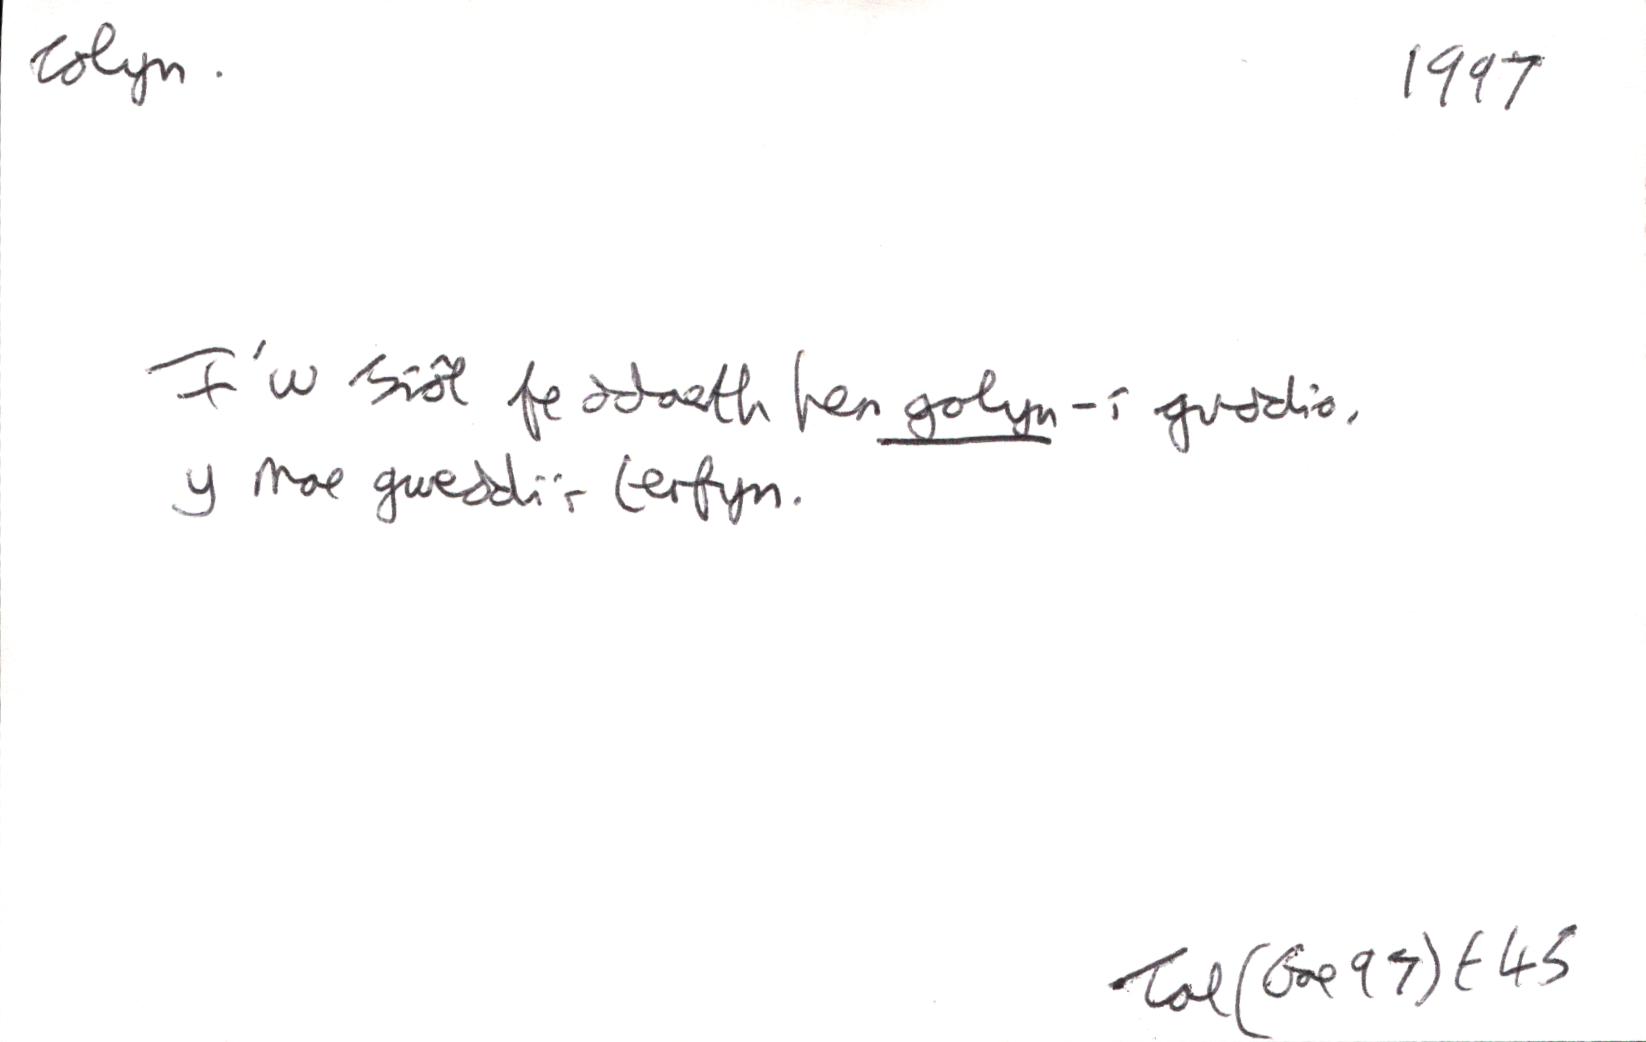 colyn.
1997
I'w siôl fe ddaeth hen golyn – i guddio,
y mae gweddi'r terfyn.
Tal (Gae 97) t 45